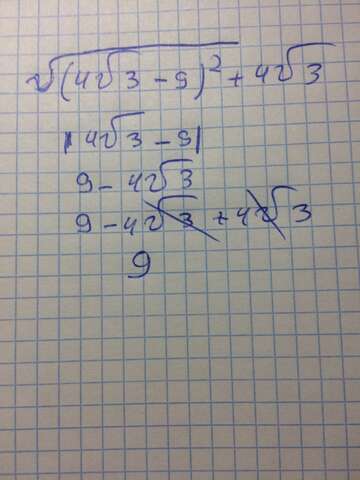 √(4√3 - 9)² + 4√3
|4√3 - 9|
9 - 4√3
9 - 4√3 + 4√3
9